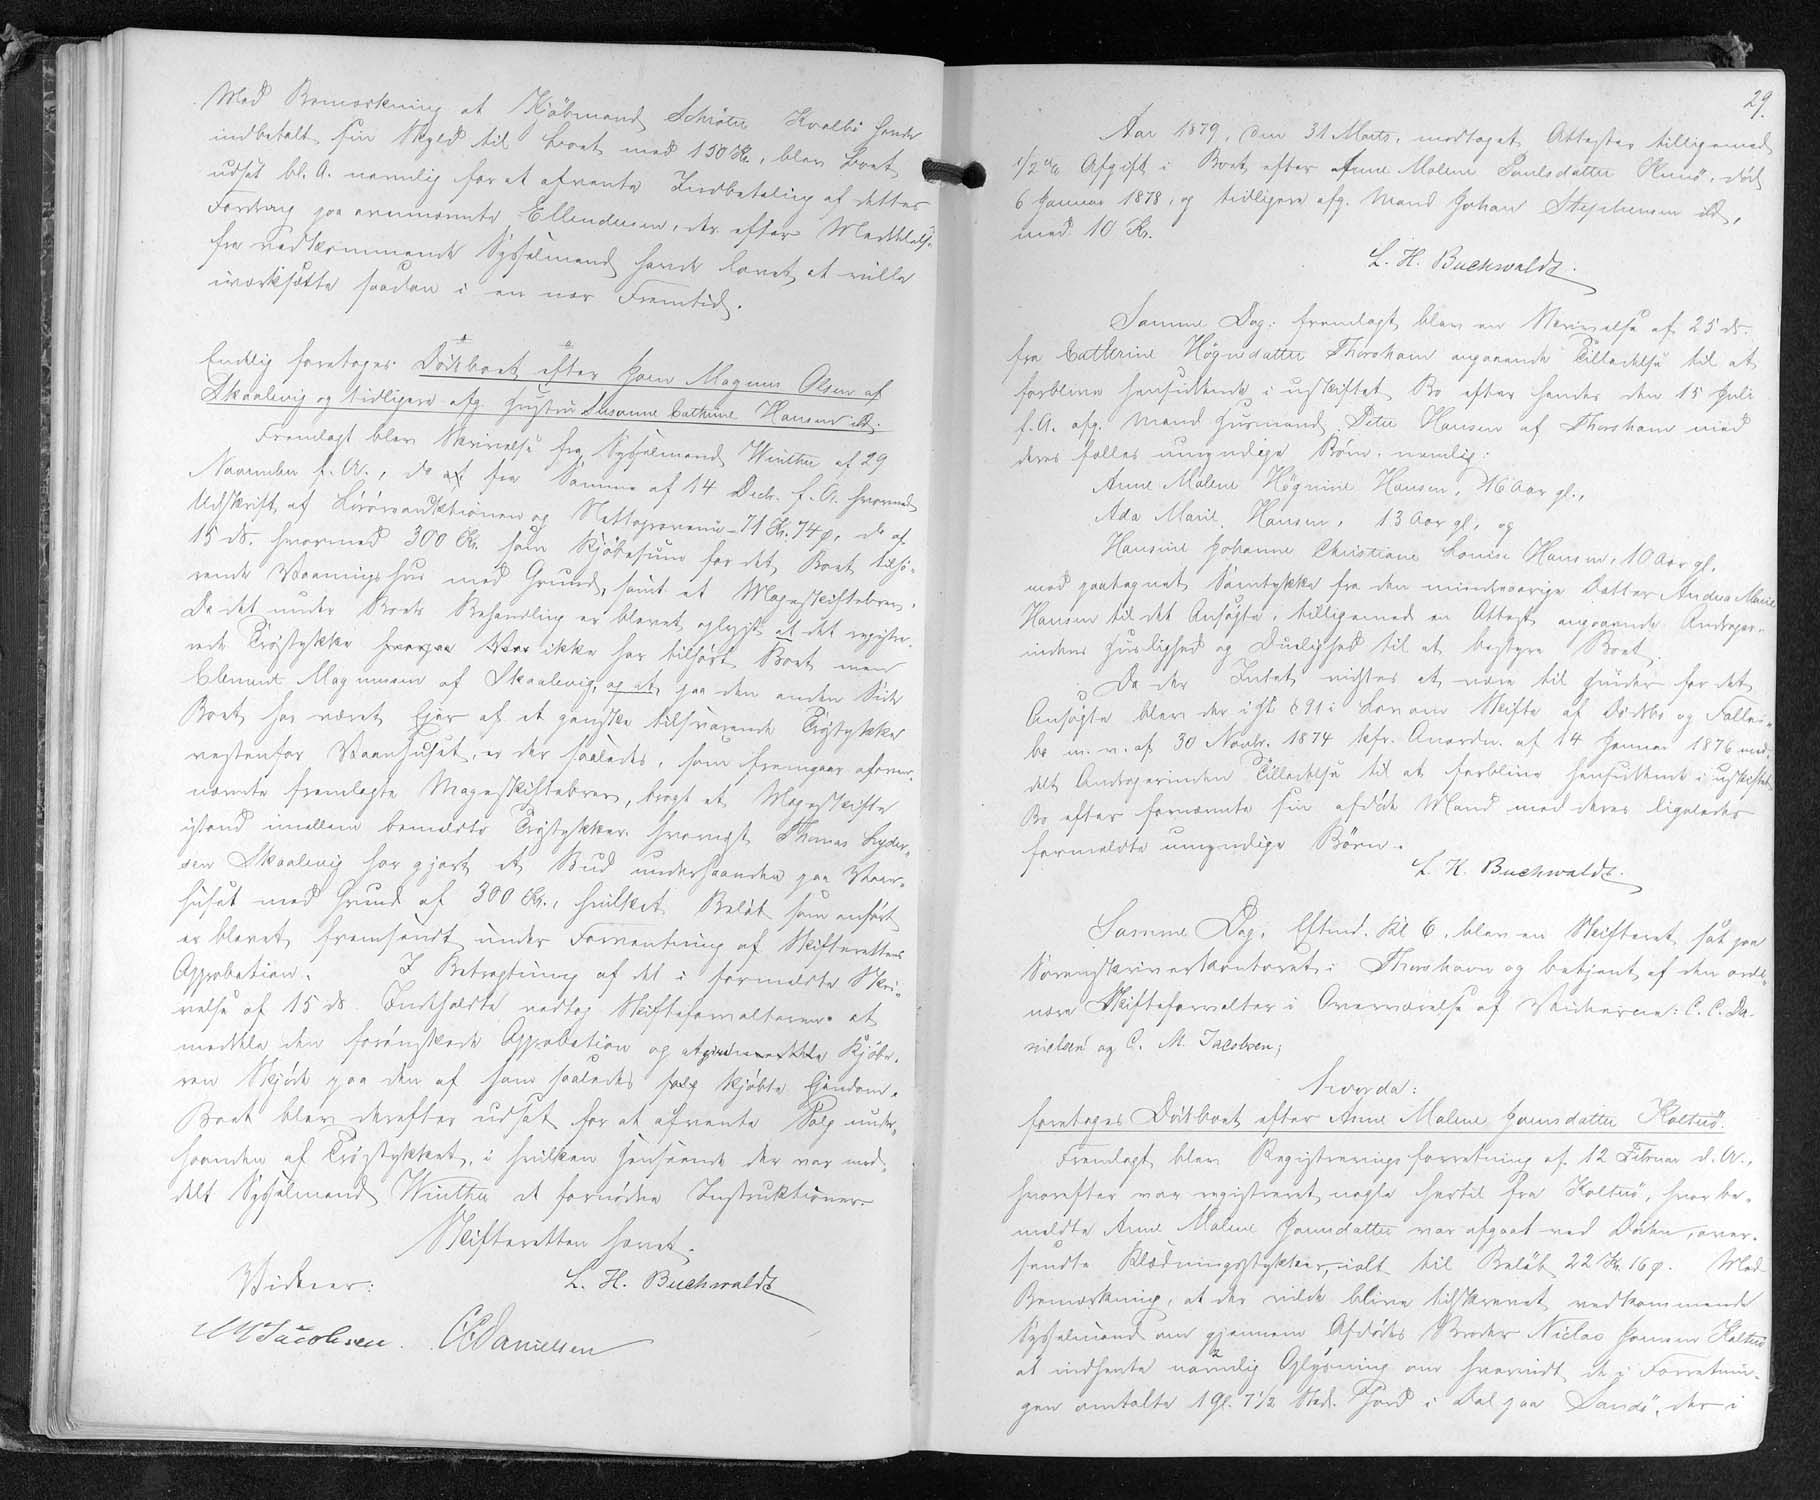 Med Bemærkning at Kjöbmand Schröter Kvalbö havde
indbetalt sin Skyld til Boet med 150 Kr., blev Boet
udsat bl. A. navnlig for at afvente Indbetaling af dettes
Fordring paa ovennævnte Ellendersen, der efter Meddelelse
fra vedkommende Sysselmand havde lovet at ville
iværksætte saadan i en nær Fremtid.
Endlig foretoges Dödsboet efter Joen Magnus Olsen af
Skaalevig og tidligere afg. Hustru Susanne Cathrine Hansen ibd.
Fremlagt blev Skrivelse fra Sysselmand Winther af 29
November f. A., do fra Samme af 14 Decb. f. A. hvormed
Udskrift af Lösöreauktionen og Nettoprovenu 71 Kr. 74 ø, do af
15 ds. hvormed 300 Kr. som Kjöbesum for det Boet tilhö-
rende Vaaningshus med Grund, samt et Mageskiftebrev.
Da det under Boets Behandling er blevet oplyst at det registre-
rede Tröstykke ikke har tilhört Boet men
Clement Magnussen af Skaalevig, og at paa den anden Side
Boet har været Ejer af et ganske tilsvarende Tröstykke
vestenfor Vaanhuset, er der saaledes, som fremgaar af oven-
nævnte fremlagte Mageskiftebrev, bragt et Mageskifte
istand imellem bemeldte Tröstykker hvorpaa Thomas Lyder-
sen Skaalevig har gjort et Bud underhaanden paa Vaan-
huset med Grund af 300 Kr., hvilket Beløb som anført
er blevet fremsendt under Forventning af Skifterettens
Approbation. I Betragtning af det i formeldte Skri-
velse af 15 ds. Indholdte vedtog Skifteforvalteren at
meddele den forönskede Approbation og at Kjöbe-
ren Skjöde paa den af ham saaledes kjöbte Ejendom.
Boet blev derefter udsat for at afvente Salg under-
haanden af Tröstykket, i hvilken Henseende der var med-
delt Sysselmand Winther de fornødne Instruktioner.
Skifteretten hævet.
L. H. Buchwaldt
Vidner:
MJacobsen. CCDanielsen
29.
Aar 1879, den 31 Marts, modtoges Attester tilligemed
1/2 % Afgift i Boet efter Anne Malene Poulsdatter Kunö, död
6 Januar 1878, og tidligere afg. Mand Johan Stephensen ibd,
med 10 Kr.
L. H. Buchwaldt.
Samme Dag: fremlagt blev en Skrivelse af 25 ds.
fra Cathrine Högnedatter Thorshavn angaaende Tilladelse til at
forblive hensiddende i uskiftet Bo efter hendes den 15 Juli
f. A. afg. Mand Husmand Peter Hansen af Thorshavn med
deres fælles umyndige Börn, nemlig:
Anne Malene Högnine Hansen, 16 Aar gl.,
Ada Marie Hansen, 13 Aar gl, og
Hansine Johanne Christiane Louise Hansen, 10 Aar gl.
med paategnet Samtykke fra den mindreaarige Datter Andrea Marie
Hansen til det Ansögte, tilligemed en Attest angaaende Andrager-
indens Huslighed og Duelighed til at bestyre Boet.
Da der Intet vidstes at være til Hinder for det
Ansögte blev der iflg. § 91 i Lov om Skifte af Dödsbo og Fælles-
bo m. v. af 30 Novbr. 1874 kfr. Anordn. af 14 Januar 1876 med-
delt Andragerinden Tilladelse til at forblive hensiddende i uskiftet
Bo efter fornævnte sin afdøde Mand med deres ligeledes
formeldte umyndige Börn.
L. H. Buchwaldt.
Samme Dag, Eftmd. Kl 6, blev en Skifteret sat paa
Sorenskriverkontoret i Thorshavn og betjent af den ordi-
nære Skifteforvalter i Overværelse af Vidnerne: C. C. Da-
nielsen og C. M. Jacobsen;
hvorda:
foretoges Dödsboet efter Anne Malene Joensdatter Koltrö.
Fremlagt blev Registreringsforretning af 12 Februar d. A.,
hvorefter var registreret nogle hertil fra Koltrö, hvor be-
meldte Anne Malene Joensdatter var afgaaet ved Döden, over-
sendte Klædningsstykker, ialt til Beløb 22 Kr 16 ø. Med
Bemærkning, at der vilde blive tilskrevet vedkommende
Sysselmand om gjennem Afdödes Broder Niclas Joensen Koltrö
at indhente navnlig Oplysning om hvorvidt de i Forretnin-
gen omtalte 1 Gl. 7 1/2 Skd. Jord i Dal paa Sandö, der i